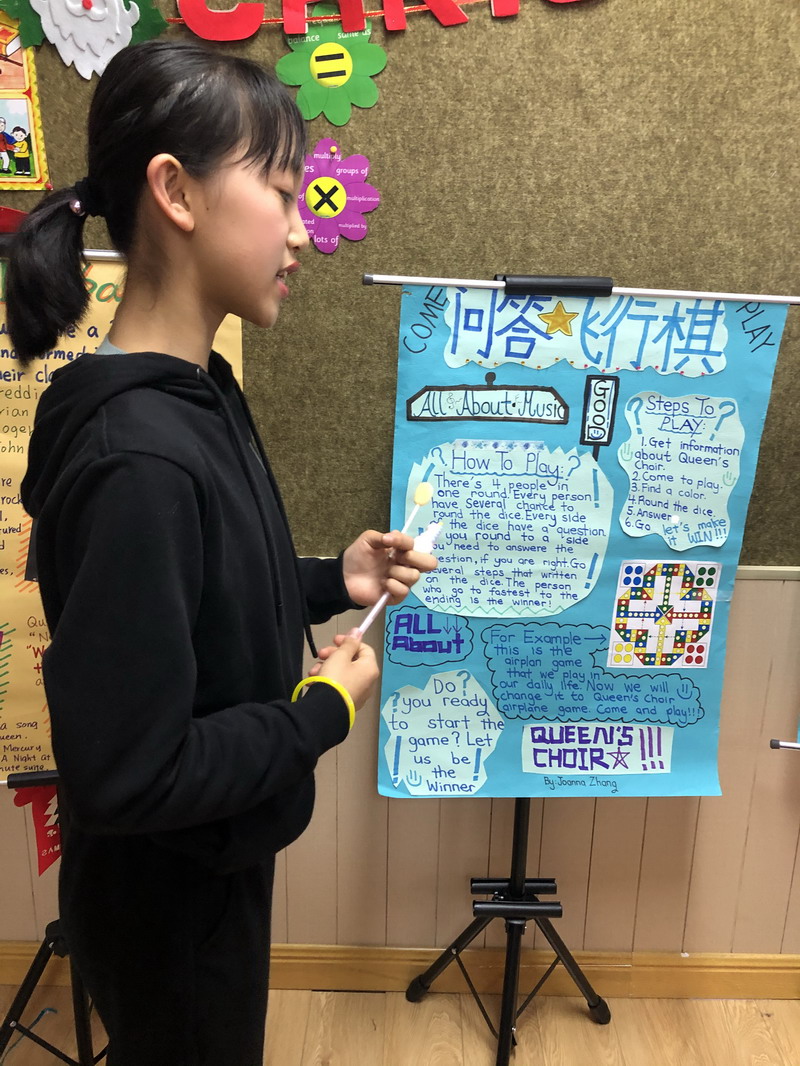 CHRIS
balance
multiply
groups of
multiplication
multiplied by
lots of
COME
PLAY
问答飞行棋
All About Music
GOOD
Steps To
PLAY:
1. Get information
about Queen's
Choir.
2. Come to play.
3. Find a color.
4. Round the dice.
5. Answer
6. Go
let's make
it WIN!!!
? How To Play: ?
There's 4 people in
one round. Every person
have Several chance to
round the dice. Every side
the dice have a question
you round to a side
you need to answers the
question, if you are right. Go
several steps that written
on the dice. The person
who go to fastest to the
ending is the winner!
ALL ↓↓
About
For Example →
this is the
airplan game
that we play in
our daily life. Now we will
change it to Queen's Choir
airplane game. Come and play!!!
Do?
you ready
to start the
game? Let
us be
the
Winner
QUEEN'S
CHOIR☆!!!
By: Joanna Zhang
a song
Mercury
A Night at